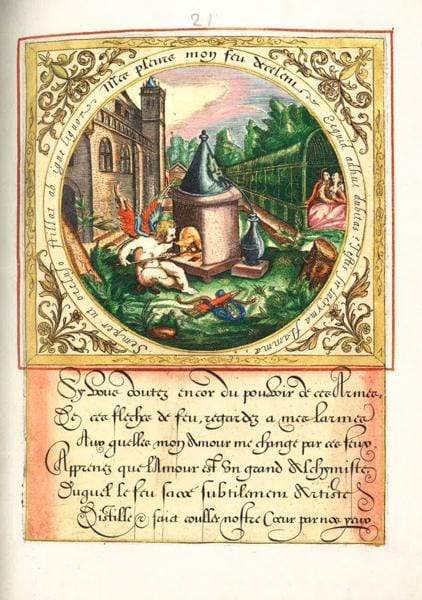 21
Mes pleurs mon feu decelent.
Ecquid adhuc dubitas? Testis lacrimæ flamma,
Semper ut occluso stillat ab igne liquor.
Sy Vous doutez encor du pouvoir de ces Armes,
De ces flesches de feu, regardez a mes larmes
Aux quelles mon Amour me change par ces feux.
Apprenez que l'Amour est Un grand Alchymiste,
Duquel le feu sacré subtilement Artiste
Distille & faict couller nostre Cœur par nos yeux